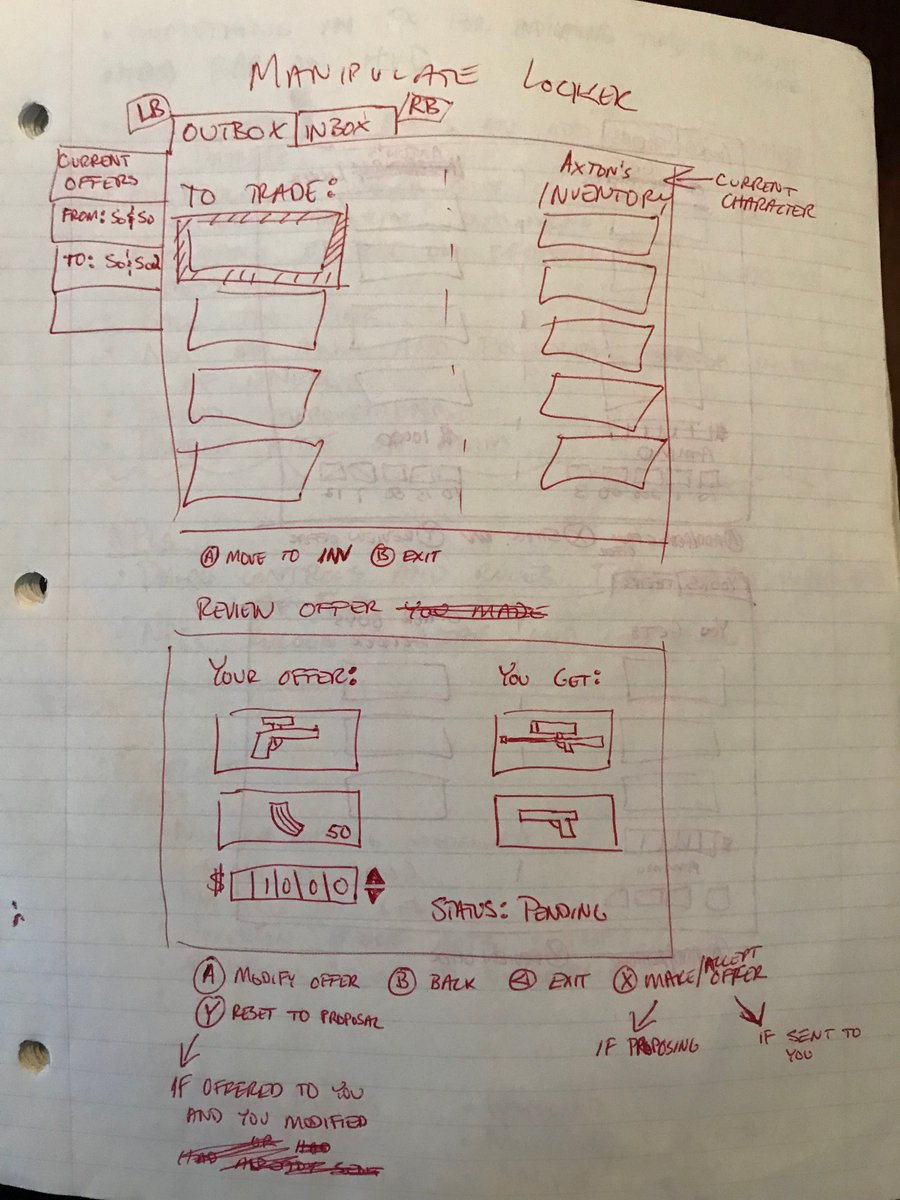 MANIPULATE LOCKER
LB
OUTBOX
INBOX
RB
CURRENT
OFFERS
FROM: SO & SO
TO: SO & SO2
TO TRADE:
AXTON'S
INVENTORY
CURRENT
CHARACTER
A MOVE TO INV B EXIT
REVIEW OFFER YOU MADE
YOUR OFFER:
YOU GET:
50
$ 1000
STATUS: PENDING
A MODIFY OFFER B BACK EXIT X MAKE/ACCEPT
OFFER
Y RESET TO PROPOSAL
IF PROPOSING
IF SENT TO
YOU
IF OFFERED TO YOU
AND YOU MODIFIED